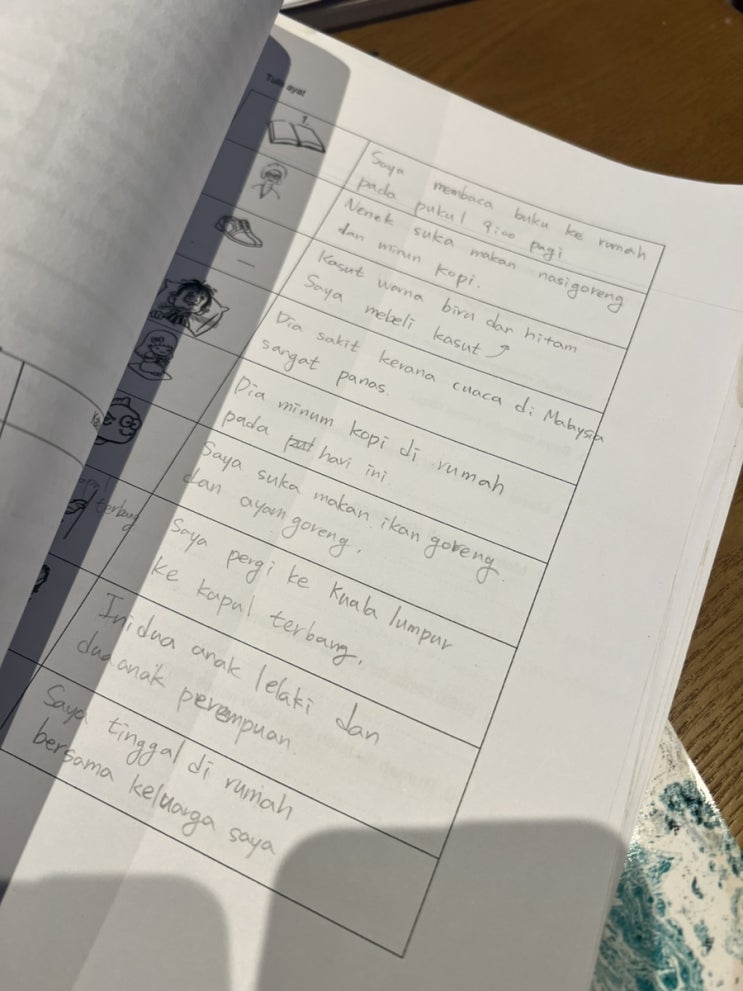 Tulis ayat
1.
Saya membaca buku ke rumah
pada pukul 9:00 pagi
Nenek suka makan nasi goreng
dan minum kopi.
Kasut warna biru dan hitam
Saya mebeli kasut
Dia sakit kerana cuaca di Malaysia
sangat panas.
Dia minum kopi di rumah
pada hari ini.
Saya suka makan ikan goreng
dan ayam goreng.
terbang
Saya pergi ke Kuala lumpur
ke kapal terbang.
Ini dua anak lelaki dan
dua anak perempuan.
Saya tinggal di rumah
bersama keluarga saya